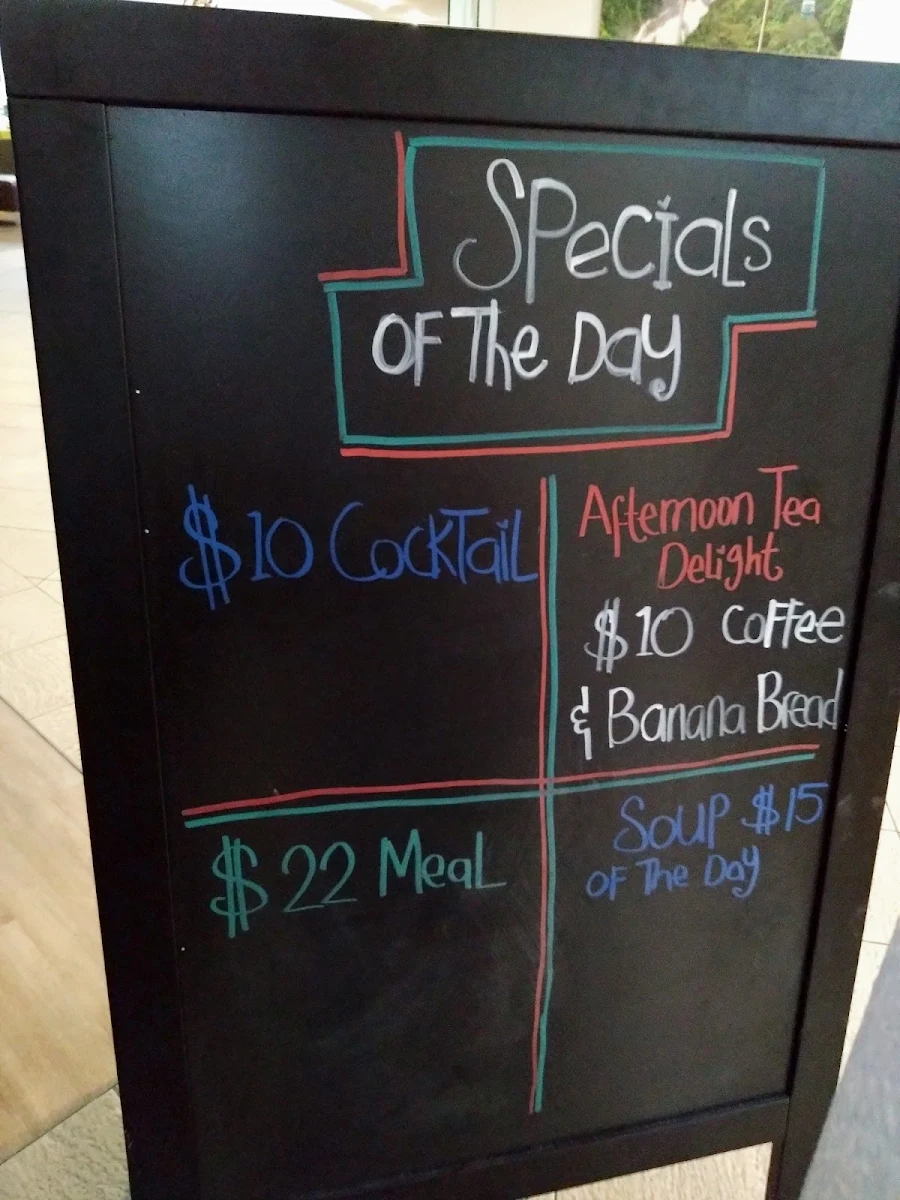 Specials
OF The Day
$10 CockTail
Afternoon Tea
Delight
$10 Coffee
& Banana Bread
$22 Meal
Soup $15
OF The Day